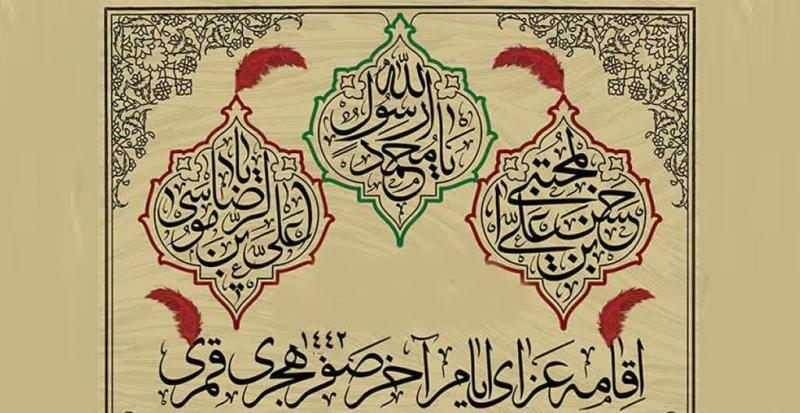 یا محمد رسول الله
حسن بن علی المجتبی
یا علی بن موسی الرضا
اقامه عزای ایام آخر صفر ١٤٤٢ هجری قمری